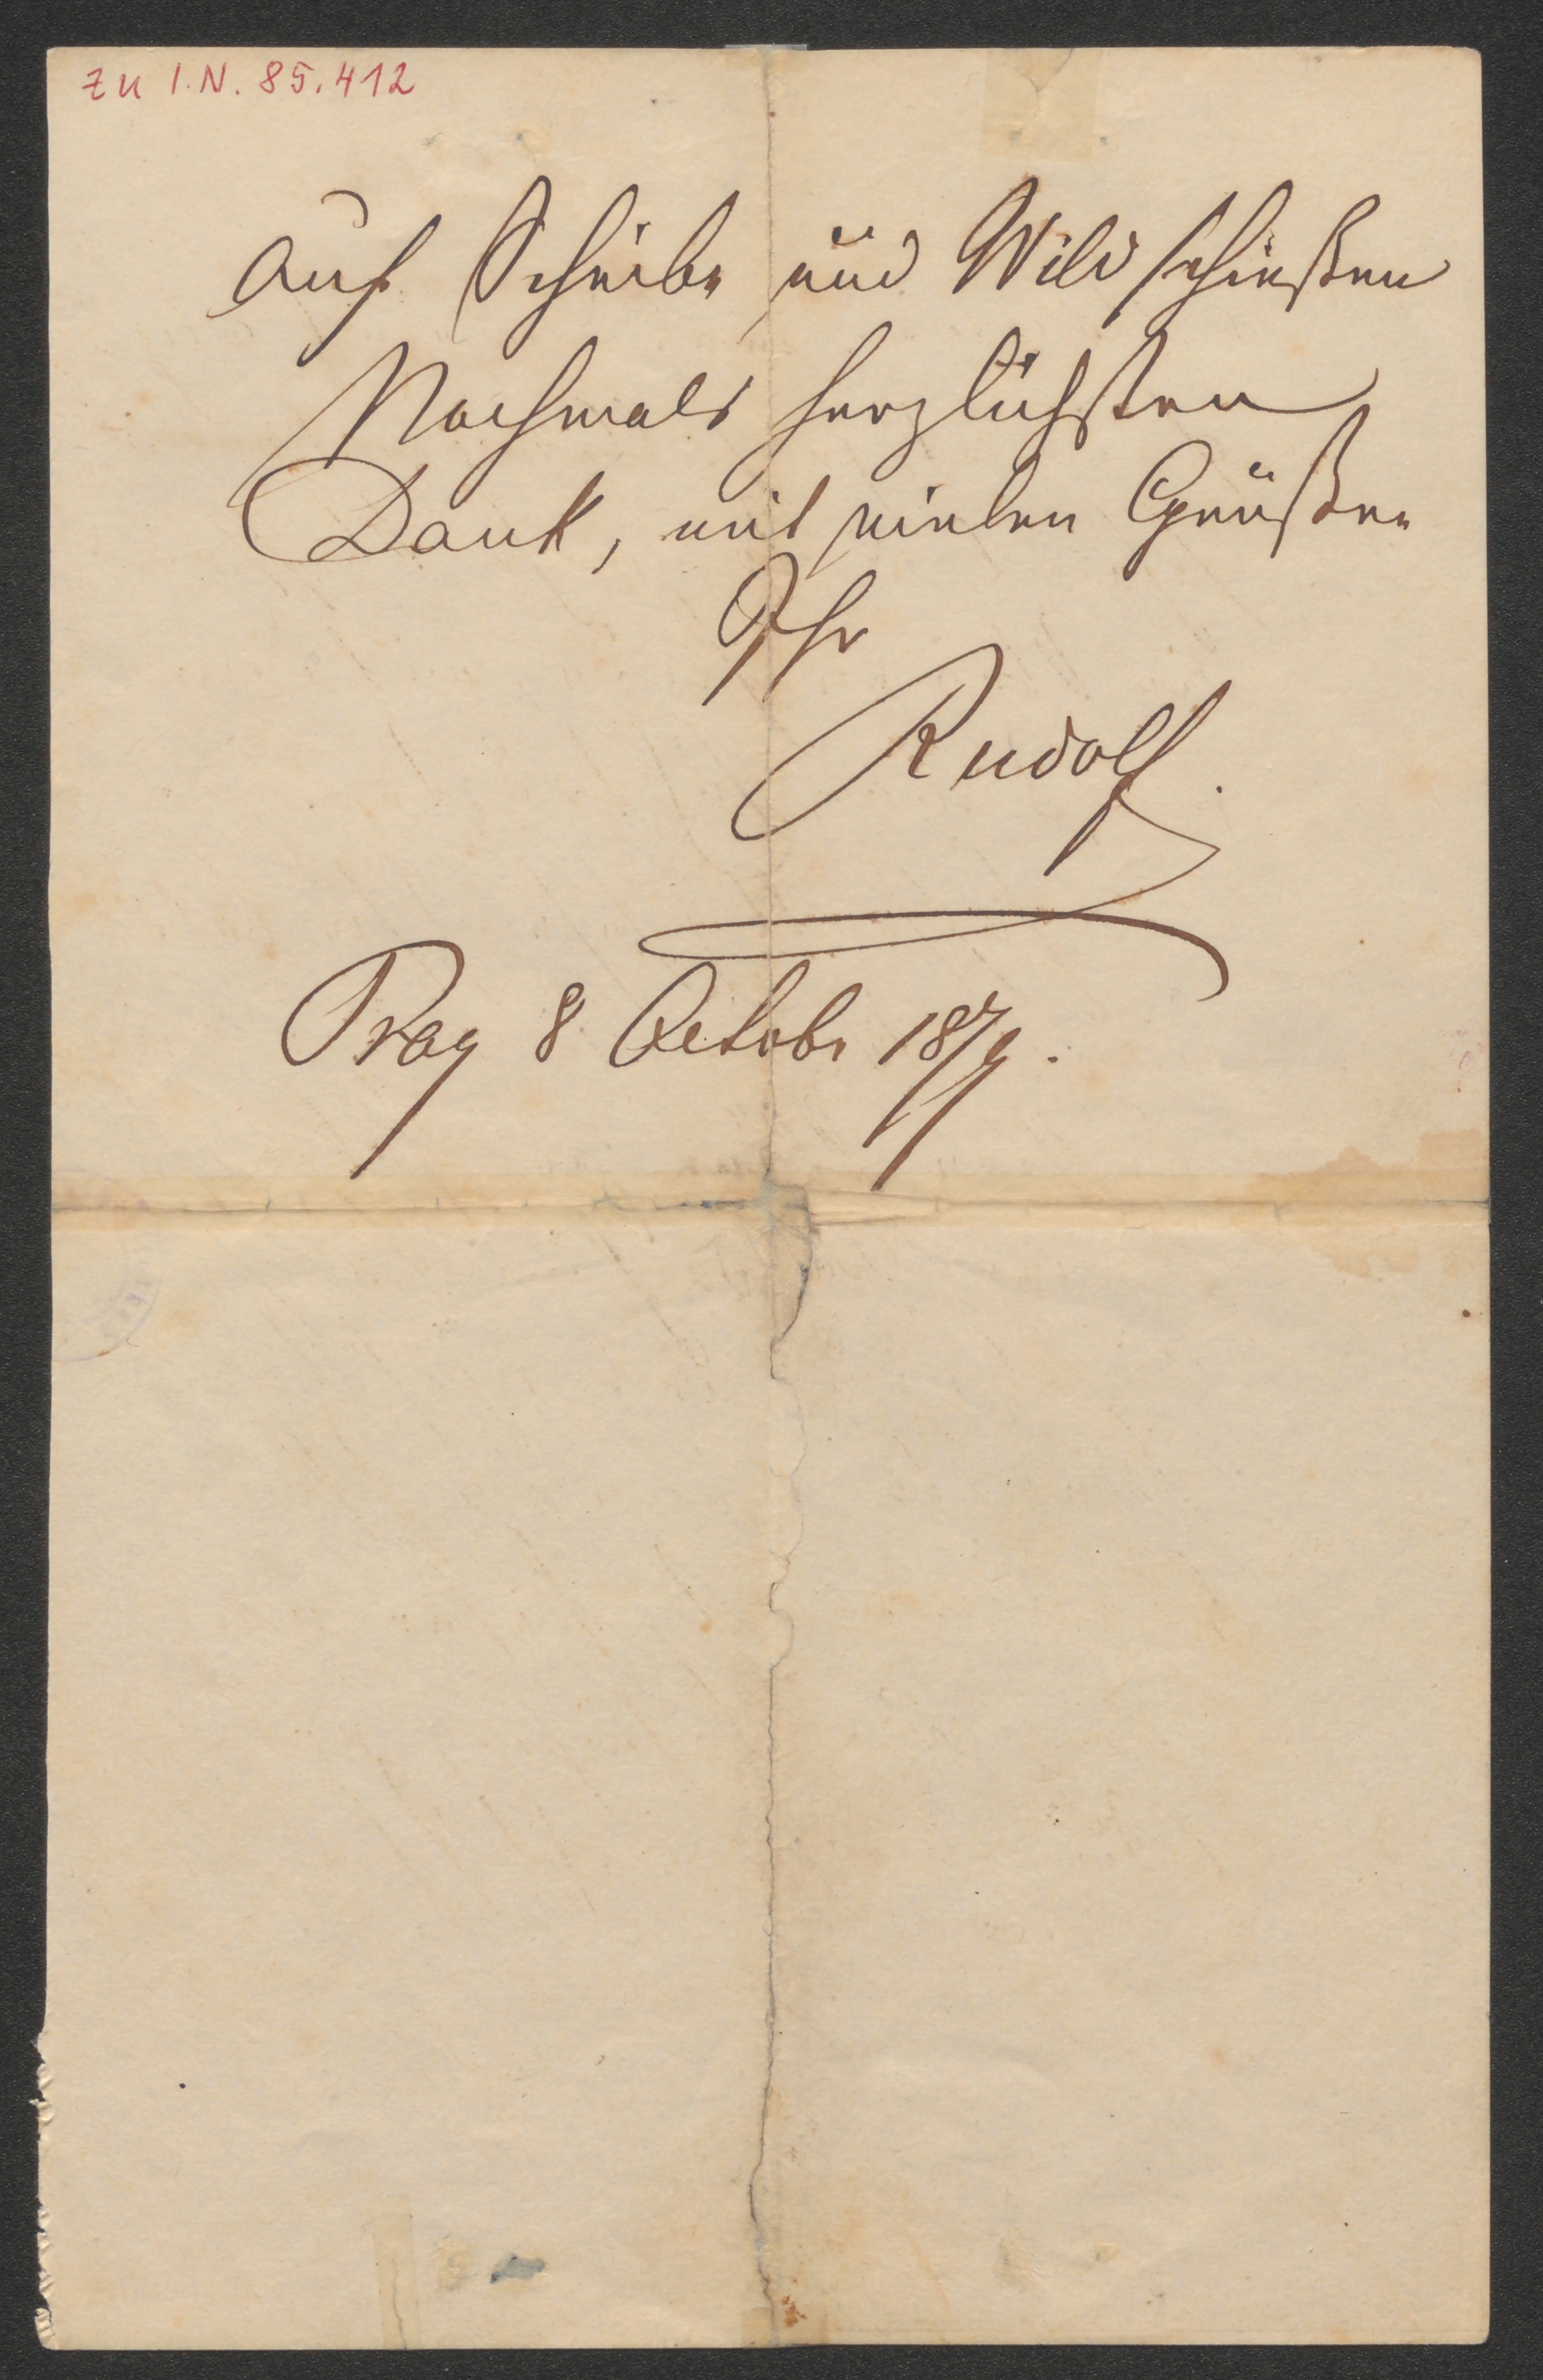 zu I.N. 85.412
auf Scheibe und Wild schießen
Nochmals herzlichsten
Dank, mit vielen Grüßen
Ihr
Rudolf.
Prag 8 October 1879.